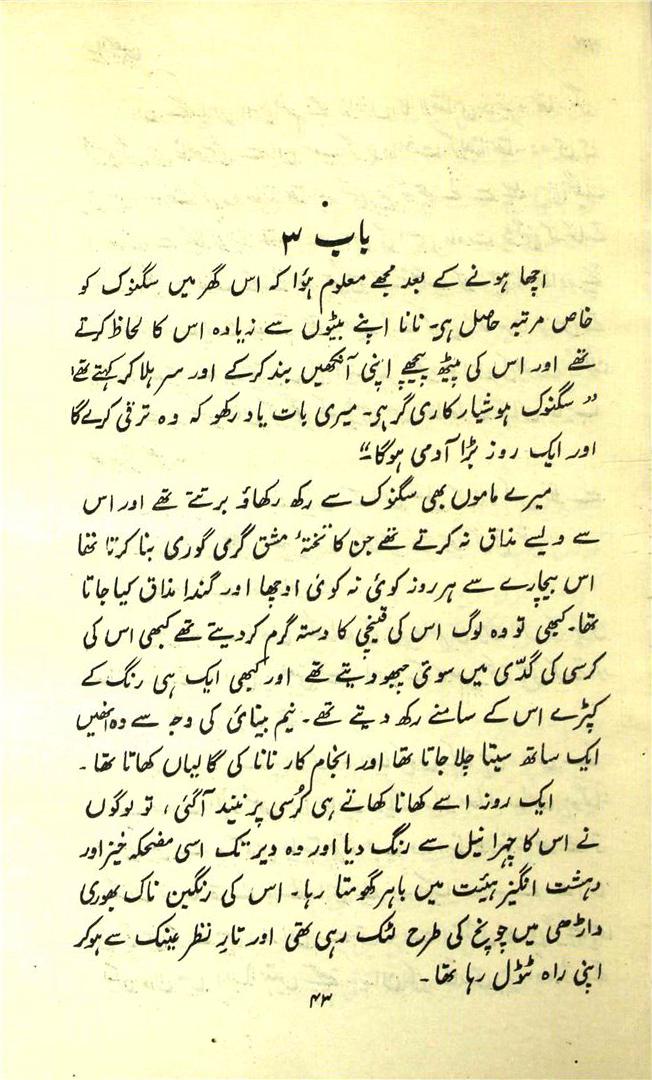 باب ۳
اچھا ہونے کے بعد مجھے معلوم ہؤا کہ اس گھر میں سگنوک کو
خاص مرتبہ حاصل ہی۔ نانا اپنے بیٹوں سے زیادہ اس کا لحاظ کرتے
تھے اور اس کی پیٹھ پیچھے اپنی آنکھیں بند کرکے اور سر ہلا کر کہتے تھے
”سگنوک ہوشیار کاری گر ہی۔ میری بات یاد رکھو کہ وہ ترقی کرے گا
اور ایک روز بڑا آدمی ہوگا۔“
میرے ماموں بھی سگنوک سے رکھ رکھاؤ برتتے تھے اور اس
سے ویسے مذاق نہ کرتے تھے جن کا تختۂ مشق گری گوری بنا کرتا تھا
اس بیچارے سے ہر روز کوئی نہ کوئی اوچھا اور گندا مذاق کیا جاتا
تھا۔ کبھی تو وہ لوگ اس کی قینچی کا دستہ گرم کر دیتے تھے کبھی اس کی
کرسی کی گدّی میں سوئی چبھو دیتے تھے اور کبھی ایک ہی رنگ کے
کپڑے اس کے سامنے رکھ دیتے تھے۔ نیم بینائی کی وجہ سے وہ انھیں
ایک ساتھ سیتا چلا جاتا تھا اور انجام کار نانا کی گالیاں کھاتا تھا۔
ایک روز اسے کھانا کھاتے ہی کُرسی پر نیند آگئی، تو لوگوں
نے اس کا چہرا نیل سے رنگ دیا اور وہ دیر تک اسی مضحکہ خیز اور
دہشت انگیز ہیئت میں باہر گھومتا رہا۔ اس کی رنگین ناک بھوری
داڑھی میں چونچ کی طرح لٹک رہی تھی اور تارِ نظر عینک سے ہوکر
اپنی راہ ٹٹول رہا تھا۔
۴۳